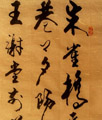 朱雀橋
巷口夕陽
王謝堂前